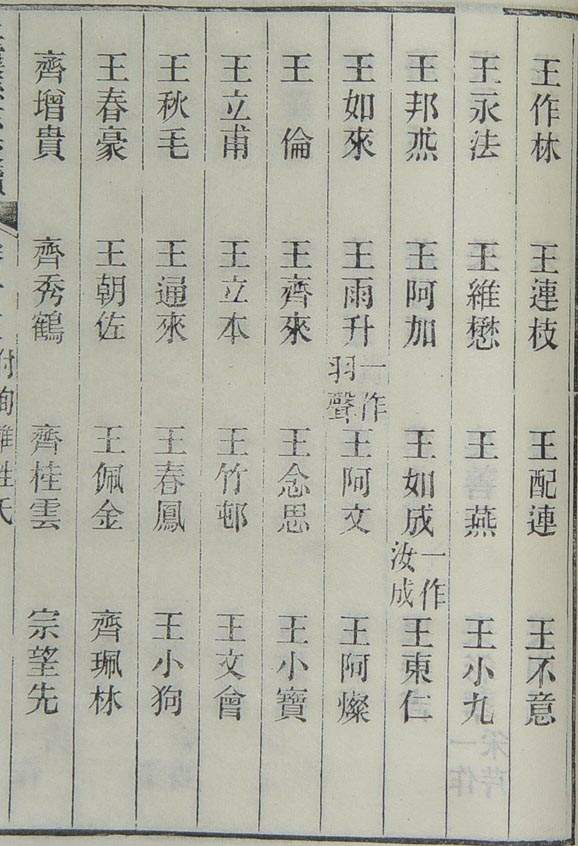 王作林 王連枝 王配連 王不意
王永法 王維懋 王燕 王小九
王邦烝 王阿加 王如成一作汝成 王東仁
王如來 王雨升一作羽聲 王阿文 王阿燦
王倫 王齊來 王念思 王小寶
王立甫 王立本 王竹邨 王文會
王秋毛 王通來 王春鳳 王小狗
王春豪 王朝佐 王佩金 齊珮林
齊增貴 齊秀鶴 齊桂雲 宗望先
附殉難姓氏